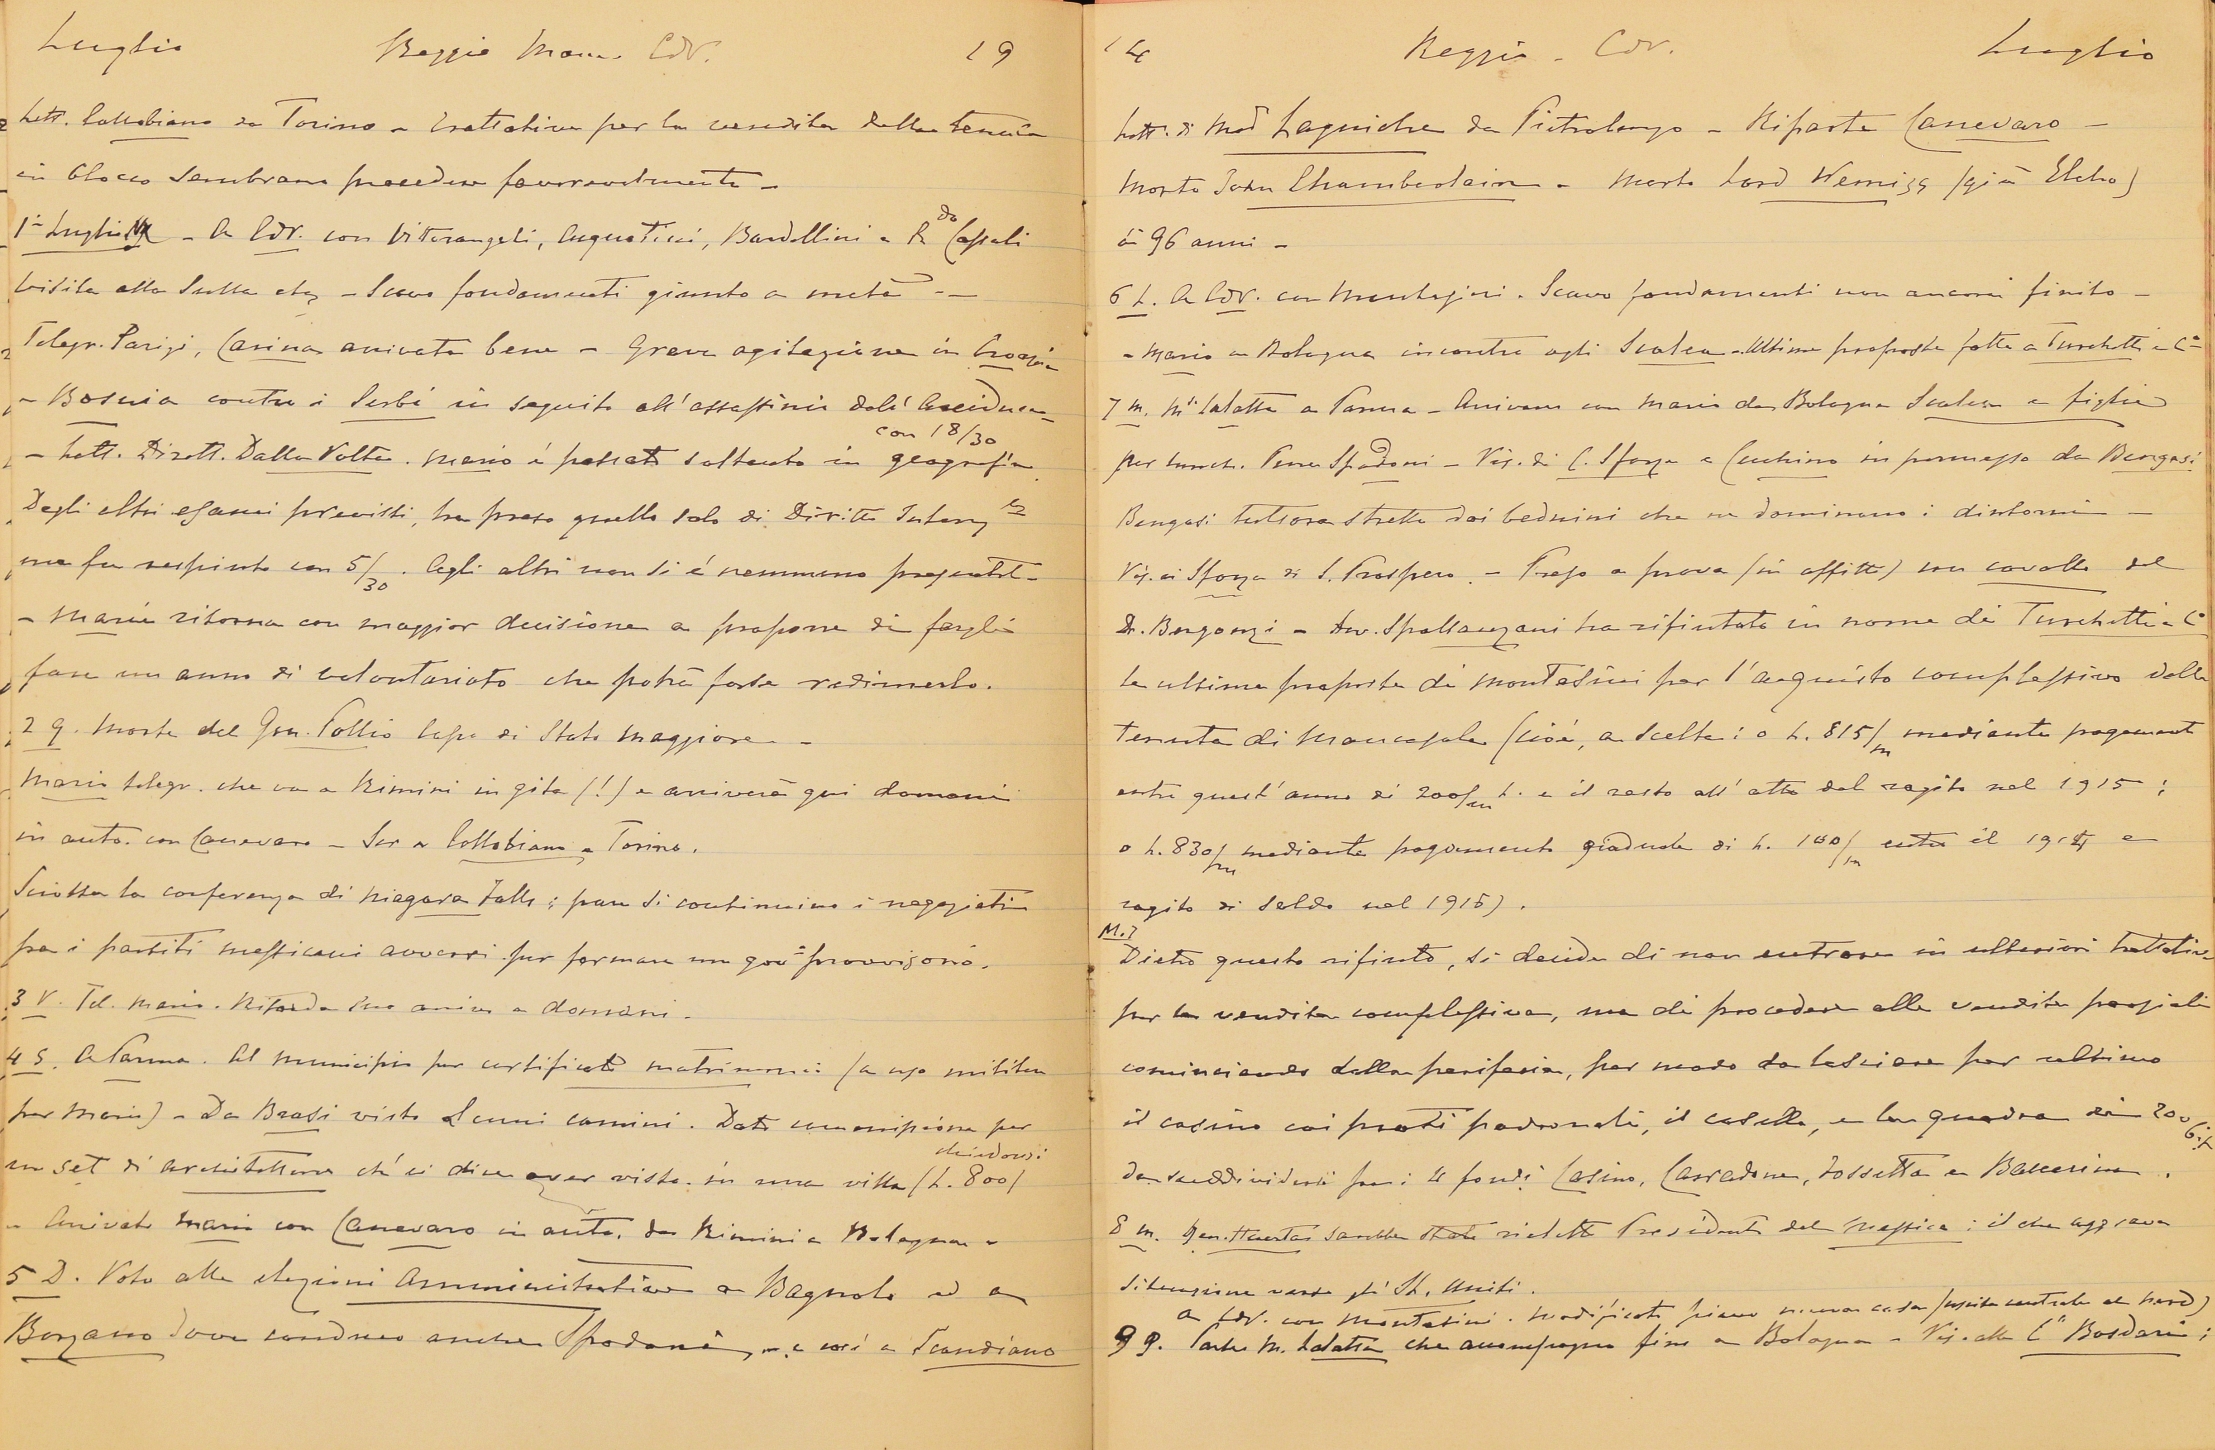 Luglio Reggio Manc. CdV. 19
Lett. Collobiano da Torino - Trattative per la vendita della tenuta
in blocco sembrano procedere favorevolmente -
1° Luglio M - A CdV. con Viterangeli, Augustini, Bardellini e R.do Cassali
visita alla Sulla etc - Scavo fondamenti giunto a metà -
Telegr. Parigi, Carina arrivata bene - Grave agitazione in Croazia
- Bosnia contro i Serbi in seguito all'assassinio dell' Arciduca -
- Lett. Dirett. Dalla Volta. Mario é passato soltanto in geografia con 18/30
Degli altri esami previsti, ha preso quello solo di Diritto Intern.
ma fu respinto con 5/30. Agli altri non si é nemmeno presentato -
- Mario ritorna con maggior decisione a proporre di fargli
fare un anno di volontariato che potrà forse redimerlo.
2 G. Morte del Gen. Pollio Capo di Stato Maggiore -
Mario telegr. che va a Rimini in gita (!) e arriverà qui domani
in auto. con Canevaro - Scr a Collobiano a Torino.
Sciolta la conferenza di Niagara Falls; pare si continuino i negoziati
fra i partiti messicani avversi per formare un gov° provvisorio.
3 V. Tel. Mario. Ritarda suo arrivo a domani.
4 S. A Parma. Al municipio per certificato matrimonio (a uso militare
per Mario) - Da Brasi visto alcuni camini. Dato commissione per
un set di architetture ch'ei dice aver visto in una villa (L. 800) chiedendi
- Arrivato Mario con Canevaro in auto. da Rimini e Bologna -
5 D. Voto alle elezioni Amministrative a Bagnolo ed a
Borzano dove conduco anche Spadoni, - e così a Scandiano
14 Reggio - CdV. Luglio
Lett. di Mad Lagniche da Pietrolungo - Riparte Canevaro -
Morto John Chamberlain - Morto Lord Wemiss (già Elcho)
à 96 anni -
6 L. A CdV. con Montesini. Scavo fondamenti non ancora finito -
- Mario a Bologna incontro agli Scalea - Ultime proposte fatte a Turchetti e C°
7 M. Mse Lalatta a Parma - Arrivano con Mario da Bologna Scalea e figlia
per lunch. Pure Spadoni - Vis. di C. Sforza e Cecchino in permesso da Bengasi
Bengasi tuttora stretta dai beduini che ne dominano i dintorni -
Vis. ai Sforza di S. Prospero. - Preso a prova (in affitto) un cavallo del
Dr. Bergonzi - Avv. Spallanzani ha rifiutato in nome di Turchetti e C°
le ultime proposte di Montesini per l'acquisto complessivo della
tenuta di Mancasale (cioé, a scelta: o L. 815/m mediante pagamento
entro quest'anno di 200/m L. e il resto all'atto del rogito nel 1915;
o L. 830/m mediante pagamento graduale di L. 100/m entro il 1914 e
rogito di saldo nel 1915).
M.7
Dietro questo rifiuto, si decide di non entrare in ulteriori trattative
per la vendita complessiva, ma di procedere alle vendite parziali
cominciando dalla periferia, per modo da lasciare per ultimo
il casino coi prati padronali, il casello, e la quadra di 200 bif.
da suddividersi fra i 4 fondi Casino, Carradone, Fossetta e Balcerina.
8 M. Gen. Huerta sarebbe stato rieletto Presidente del Messico: il che aggrava
situazione verso gli St. Uniti.
A CdV. con Montesini. Modificato piano nuova casa (uscita centrale al nord)
9 G. Parte M. Lalatta che accompagno fino a Bologna - Vis. alla C.a Bosdari;